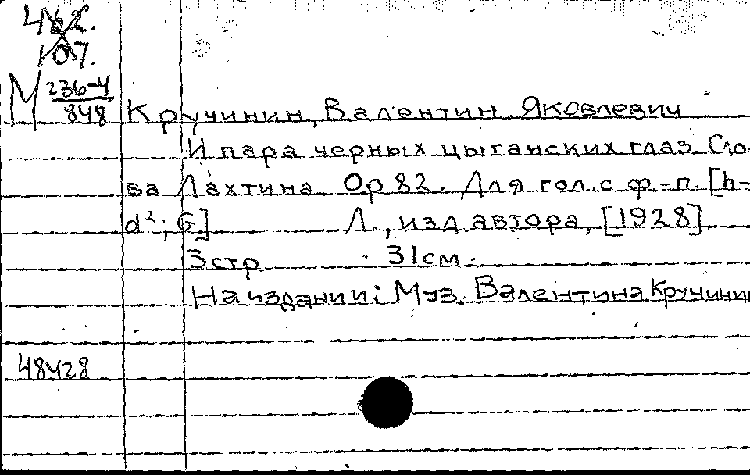 462.
107.
М 236-4
848
Кручинин, Валентин Яковлевич
И пара черных цыганских глаз. Сло-
ва Лахтина. Op 82. Для гол. с ф.-п. [h-
d²; G.] Л., изд автора, [1928]
3 стр. 31 см.
На издании: Муз. Валентина Кручинин
48428